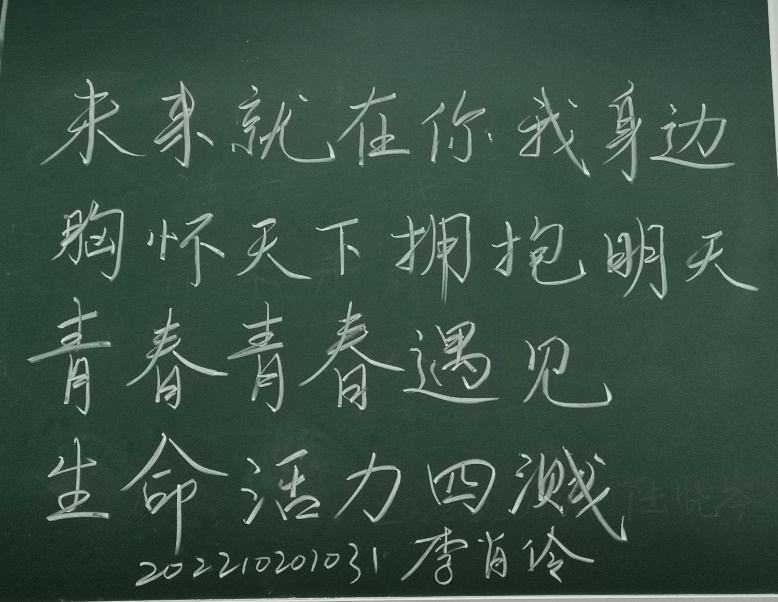 未来就在你我身边
胸怀天下拥抱明天
青春青春遇见
生命活力四溅
202210201031 李肖伶